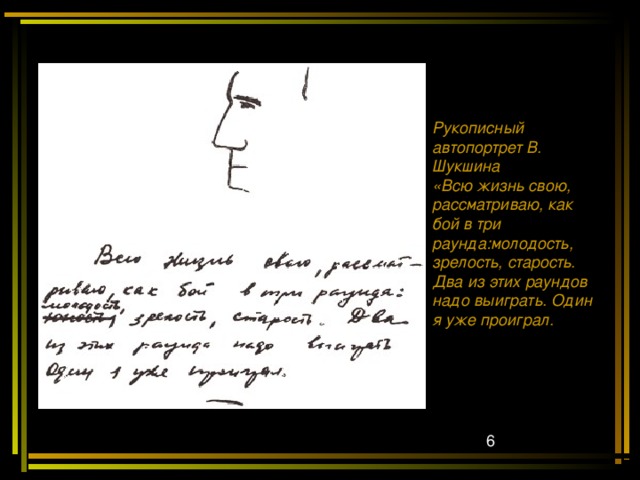 Всю жизнь свою, рассмат-
риваю, как бой в три раунда:
молодость,
юность, зрелость, старость. Два
из этих раунда надо выиграть
Один я уже проиграл.
Рукописный
автопортрет В.
Шукшина
«Всю жизнь свою,
рассматриваю, как
бой в три
раунда:молодость,
зрелость, старость.
Два из этих раундов
надо выиграть. Один
я уже проиграл.
6